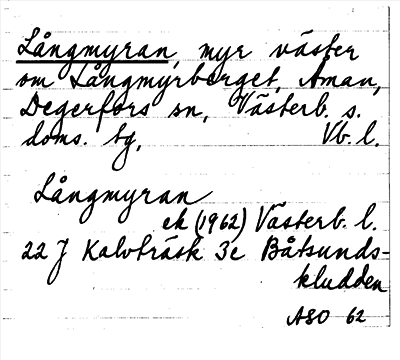 Långmyran, myr väster
om Långmyrberget, Åman,
Degerfors sn, Västerb. s.
doms. tg, Vb. l.
Långmyran
ek (1962) Västerb. l.
22 J Kalvträsk 3c Båtsunds-
kludden
ASO 62